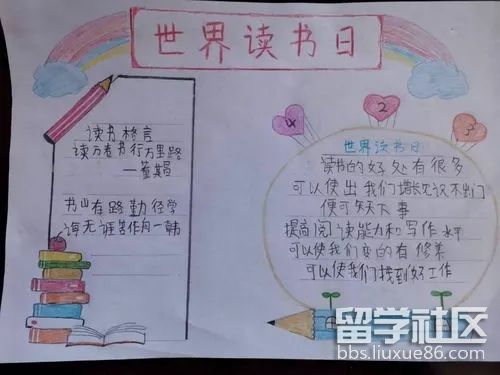 世界读书日
读书格言
读万卷书行万里路
一董其昌
书山有路勤径学
海无涯苦作舟一韩
4
2
3
世界读书日
读书的好处有很多
可以使出我们增长见识不出门
便可知天下事
提高阅读能力和写作水平
可以使我们变的有修养
可以使我们找到好工作
留学社区
bbs.liuxue86.com